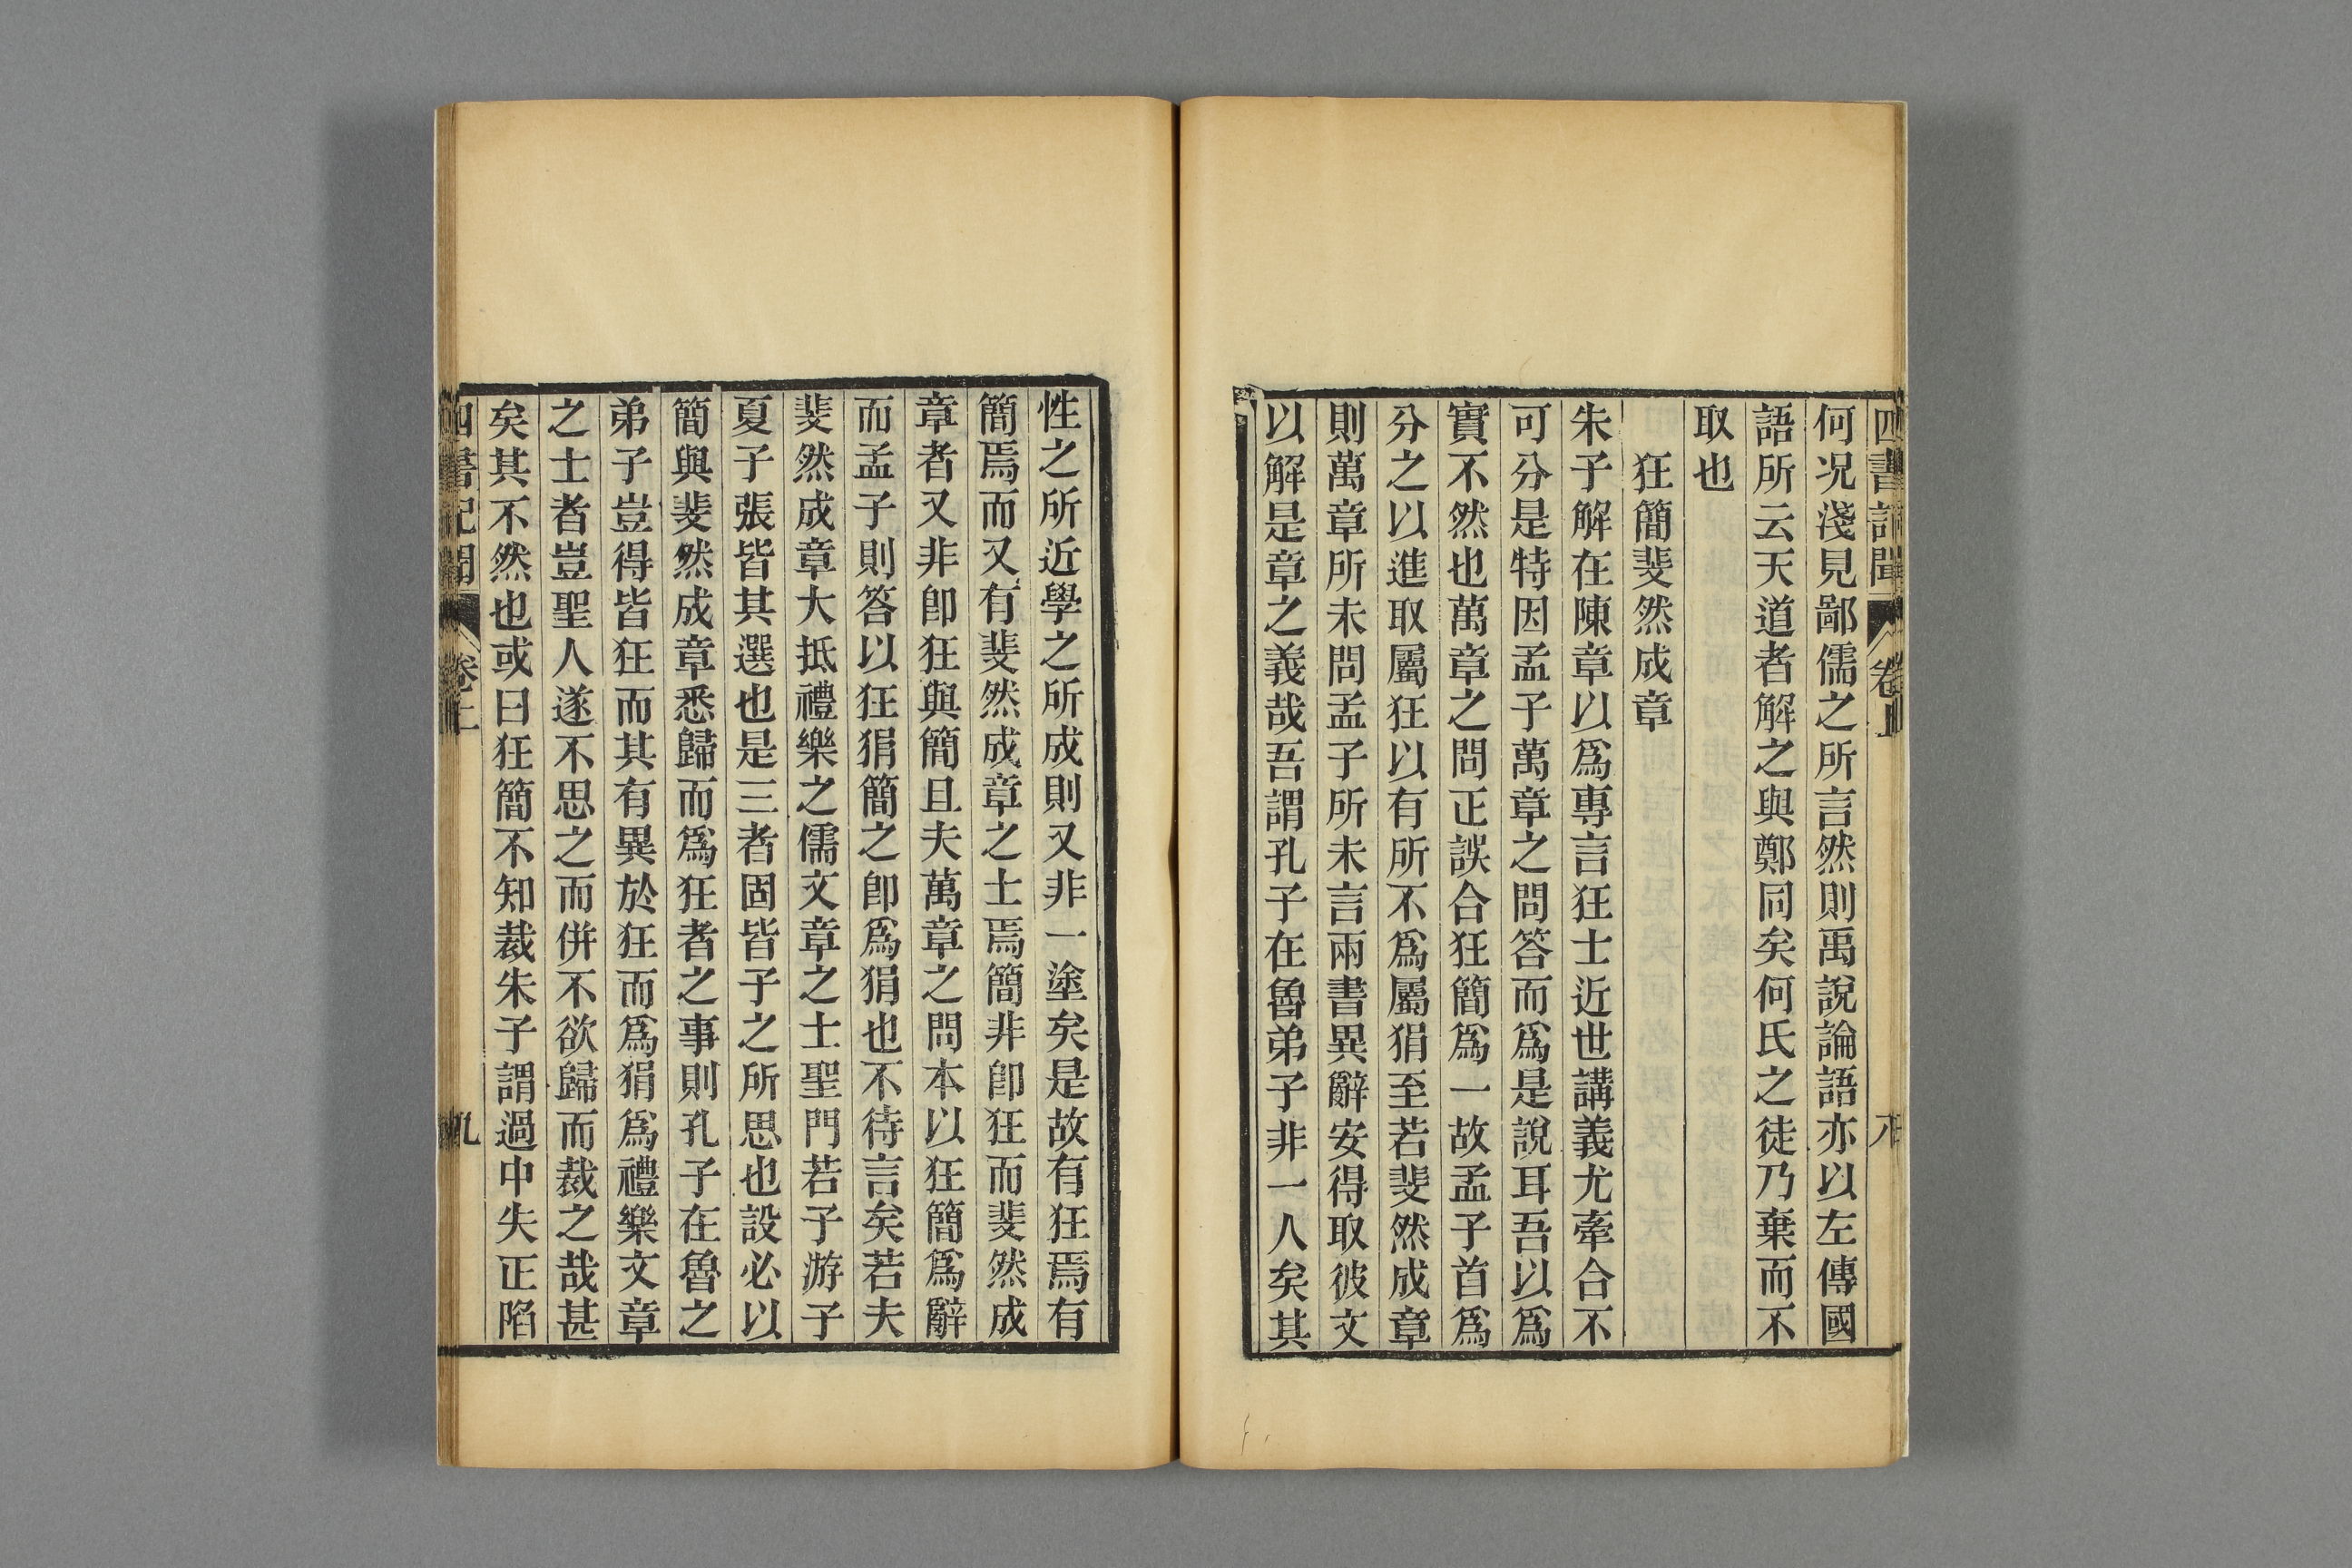 何况淺見鄙儒之所言然則禹說論語亦以左傳國
語所云天道者解之與鄭同矣何氏之徒乃棄而不
取也
狂簡斐然成章
朱子解在陳章以爲專言狂士近世講義尤牽合不
可分是特因孟子萬章之問答而爲是說耳吾以爲
實不然也萬章之問正誤合狂簡爲一故孟子首爲
分之以進取屬狂以有所不爲屬狷至若斐然成章
則萬章所未問孟子所未言兩書異辭安得取彼文
以解是章之義哉吾謂孔子在魯弟子非一人矣其
性之所近學之所成則又非一塗矣是故有狂焉有
簡焉而又有斐然成章之士焉簡非卽狂而斐然成
章者又非卽狂與簡且夫萬章之問本以狂簡爲辭
而孟子則答以狂狷簡之卽爲狷也不待言矣若夫
斐然成章大抵禮樂之儒文章之士聖門若子游子
夏子張皆其選也是三者固皆子之所思也設必以
簡與斐然成章悉歸而爲狂者之事則孔子在魯之
弟子豈得皆狂而其有異於狂而爲狷爲禮樂文章
之士者豈聖人遂不思之而併不欲歸而裁之哉甚
矣其不然也或曰狂簡不知裁朱子謂過中失正陷
四書記聞 卷上 九